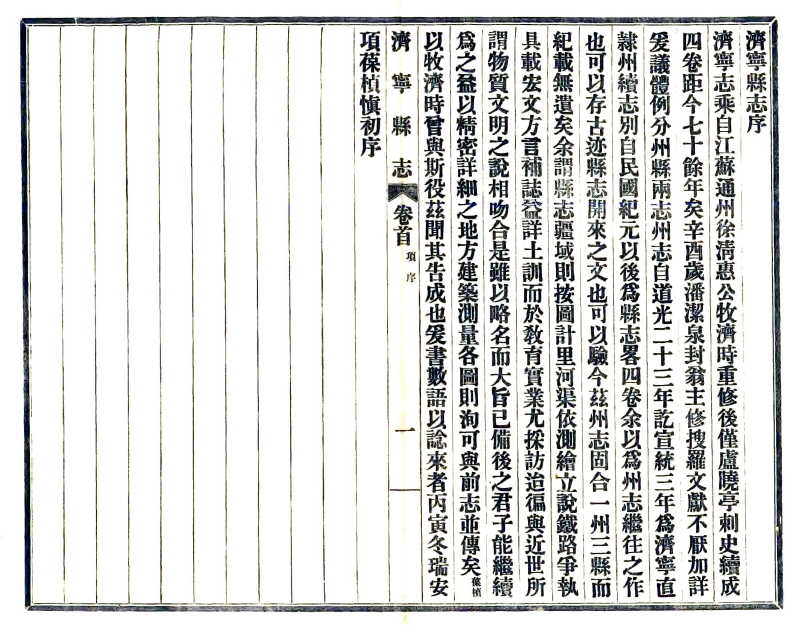 濟寧縣志序
濟寧志乘自江蘇通州徐清惠公牧濟時重修後僅盧曉亭刺史續成
四卷距今七十餘年矣辛酉歲潘潔泉封翁主修搜羅文獻不厭加詳
爰議體例分州縣兩志州志自道光二十三年訖宣統三年爲濟寧直
隷州續志別自民國紀元以後爲縣志畧四卷余以爲州志繼往之作
也可以存古迹縣志開來之文也可以驗今茲州志固合一州三縣而
紀載無遺矣余謂縣志疆域則按圖計里河渠依測繪立說鐵路爭執
具載宏文方言補誌益詳土訓而於敎育實業尤採訪迨徧與近世所
謂物質文明之說相吻合是雖以略名而大旨已備後之君子能繼續
爲之益以精密詳細之地方建築測量各圖則洵可與前志並傳矣葆楨
以牧濟時曾與斯役茲聞其告成也爰書數語以諗來者丙寅冬瑞安
濟寧縣志
卷首
項序
一
項葆楨愼初序